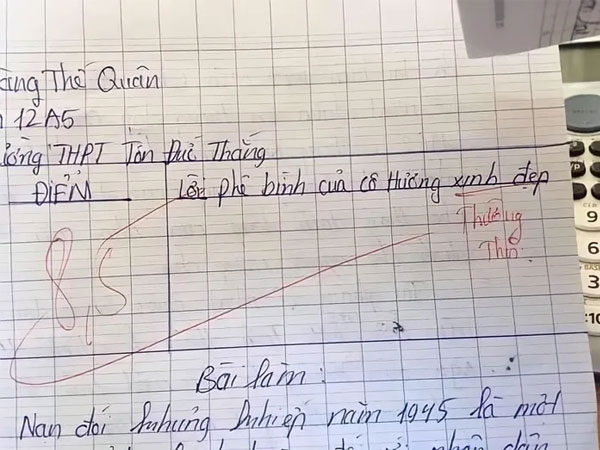 Thế Quân
12A5
THPT Tôn Đức Thắng
ĐIỂM
Lời phê bình của cô Hương xinh đẹp
8,5
Thương
Thìn.
Bài làm:
Nạn đói khủng khiếp năm 1945 là một
9
6
3